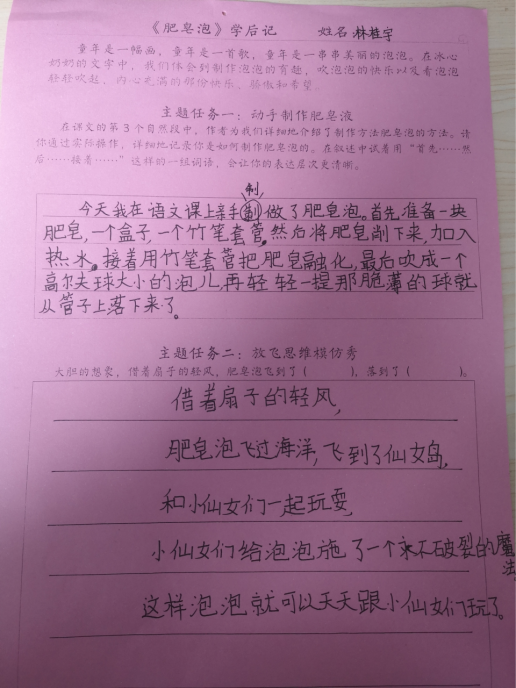 《肥皂泡》学后记 姓名 林桂宇
童年是一幅画，童年是一首歌，童年是一串串美丽的泡泡。在冰心
奶奶的文字中，我们体会到制作泡泡的有趣，吹泡泡的快乐以及看泡泡
轻轻吹起、内心充满的那份快乐、骄傲和希望。
主题任务一：动手制作肥皂液
在课文的第3个自然段中，作者为我们详细地介绍了制作方法肥皂泡的方法。请
你通过实际操作，详细地记录你是如何制作肥皂泡的。在叙述中试着用“首先……然
后……接着……”这样的一组词语，会让你的表达层次更清晰。
制
今天我在语文课上亲手制做了肥皂泡。首先准备一块
肥皂,一个盒子,一个竹笔套管。然后将肥皂削下来,加入
热水。接着用竹笔套管把肥皂融化,最后吹成一个
高尔夫球大小的泡儿再轻轻一提那脆薄的球就
从管子上落下来了。
主题任务二：放飞思维模仿秀
大胆的想象，借着扇子的轻风，肥皂泡飞到了（ ），落到了（ ）。
借着扇子的轻风,
肥皂泡飞过海洋,飞到了仙女岛,
和小仙女们一起玩耍
小仙女们给泡泡施了一个永不破裂的魔法
这样泡泡就可以天天跟小仙女们玩了。